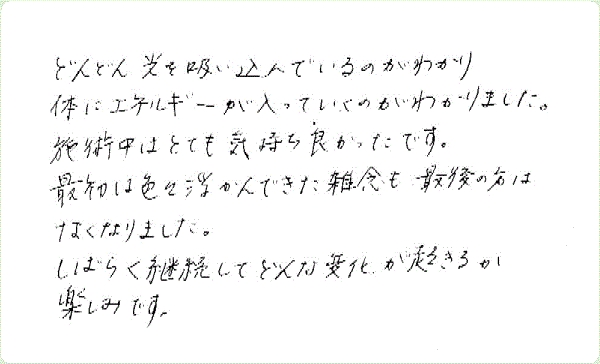 どんどん光を吸い込んでいるのがわかり
体にエネルギーが入っていくのがわかりました。
施術中はとても気持ち良かったです。
最初は色々浮かんできた雑念も最後の方は
なくなりました。
しばらく継続してどんな変化が起きるか
楽しみです。